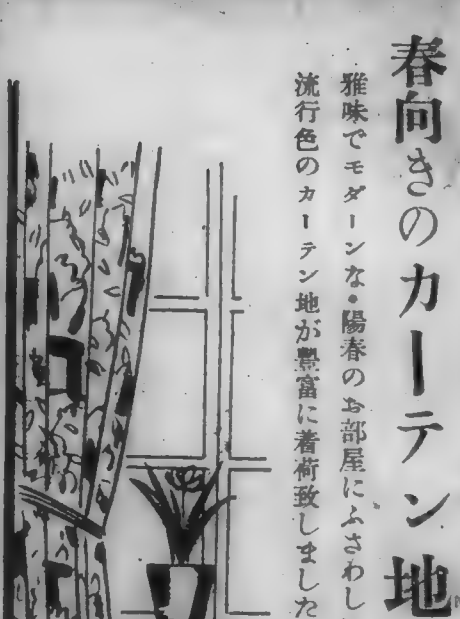 春向きのカーテン地
雅味でモダーンな・陽春のお部屋にふさわし
流行色のカーテン地が豐富に着荷致しました